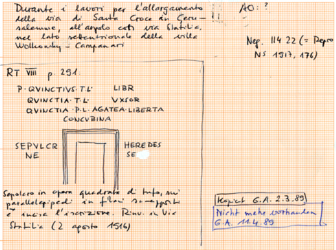 Durante i lavori per l'allargamento
della via di Santa Croce in Geru-
salemme, all'angolo con via Statilia,
nel lato settentrionale della villa
Wolkonsky - Campanari
AO: ?
Neg. 11422 (= Repro
NS 1917, 176)
RT VIII p. 291.
P. QVINCTIVS. T. L. LIBR
QVINCTIA. T. L. VXSOR
QVINCTIA. P. L. AGATEA. LIBERTA
CONCVBINA
SEPVLCR HEREDES
NE SE
Sepolcro in opera quadrata di tufo, sui
parallelepipedi in filari sovrapposti
è incisa l'iscrizione. Rinv. in Via
Statilia (2 agosto 1916)
Kopiert G.A. 2.3.89
Nicht mehr vorhanden
G.A. 11.4.89